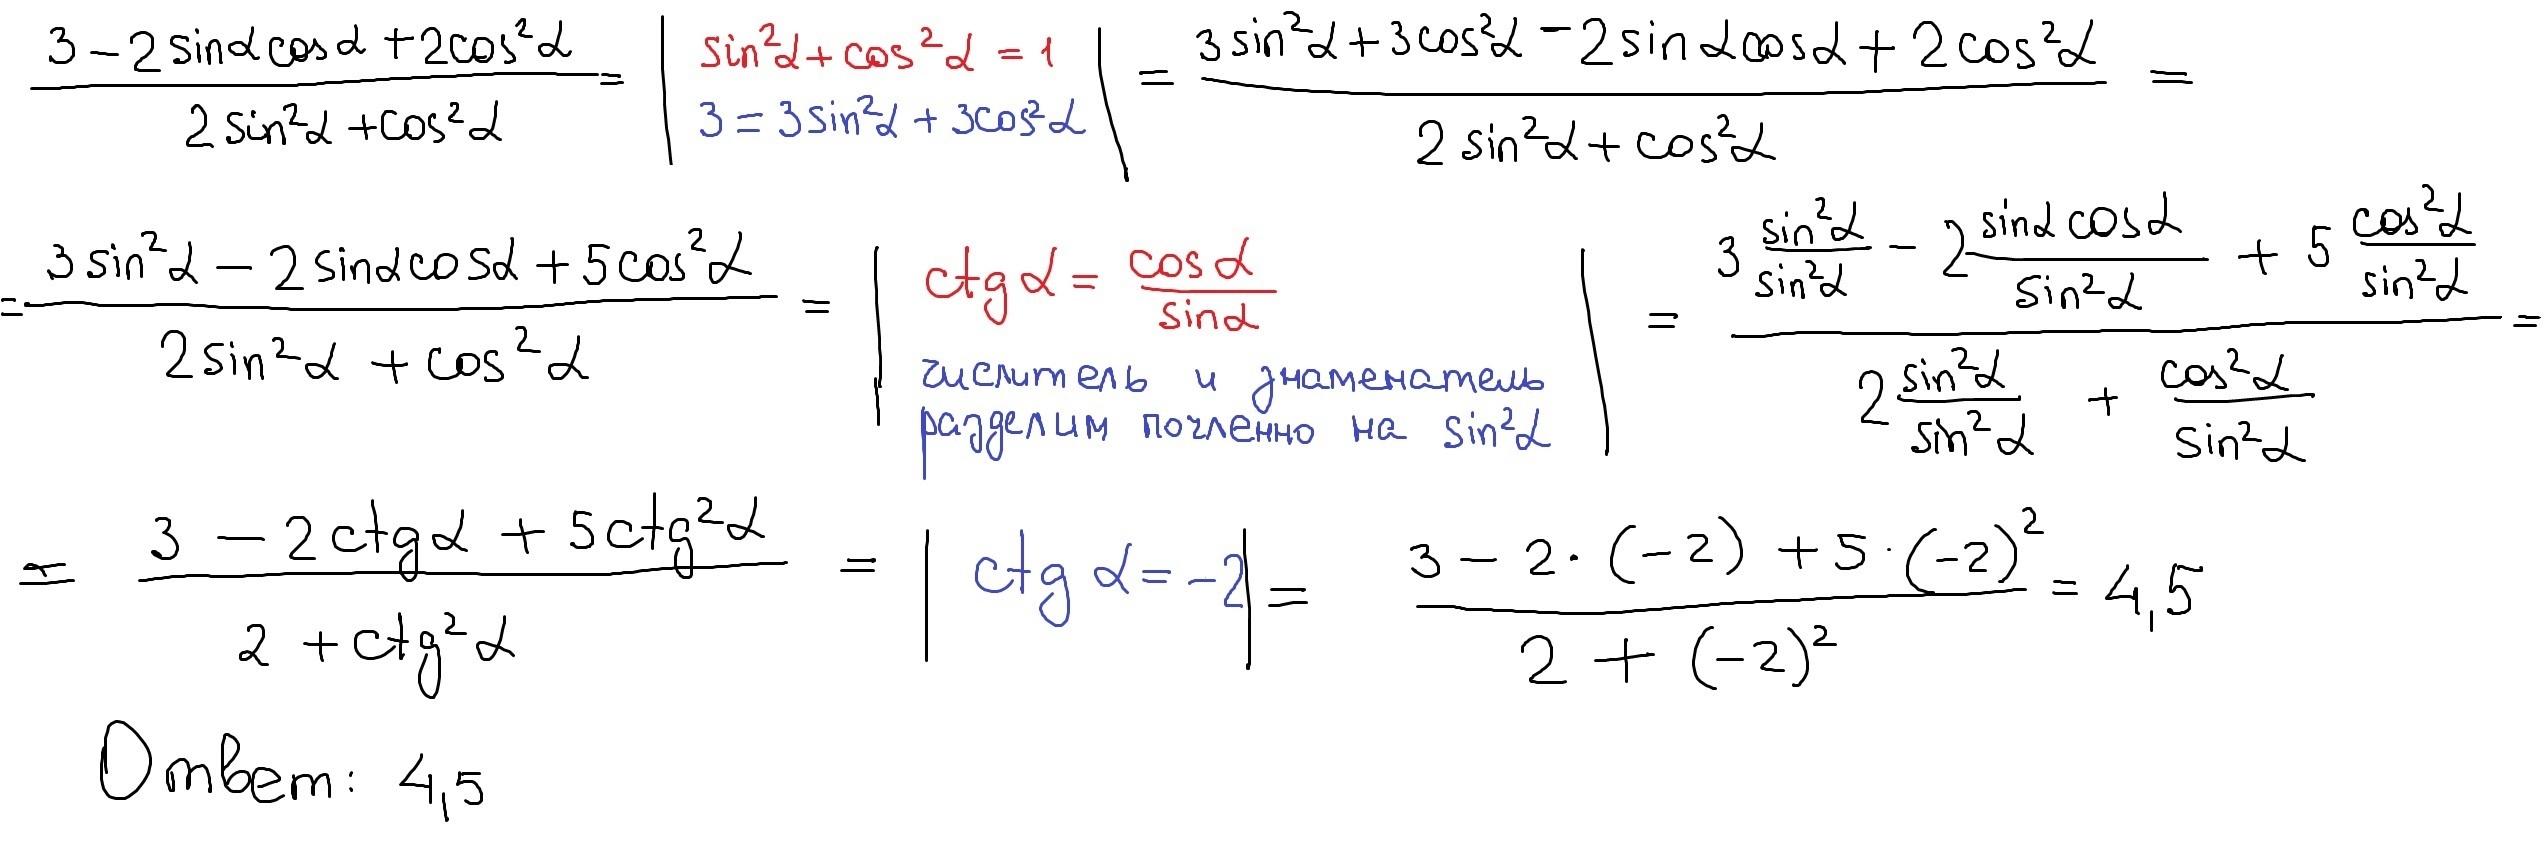 (3 − 2 sinα cosα + 2cos²α) / (2 sin²α + cos²α) = | sin²α + cos²α = 1 3 = 3 sin²α + 3cos²α | = (3 sin²α + 3cos²α − 2 sinα cosα + 2 cos²α) / (2 sin²α + cos²α) =
= (3 sin²α − 2 sinα cosα + 5 cos²α) / (2 sin²α + cos²α) = | ctg α = cos α / sin α числитель и знаменатель разделим почленно на sin²α | = (3 sin²α/sin²α − 2 sinα cosα/sin²α + 5 cos²α/sin²α) / (2 sin²α/sin²α + cos²α/sin²α) =
= (3 − 2 ctg α + 5 ctg²α) / (2 + ctg²α) = | ctg α = −2 | = (3 − 2 · (−2) + 5 · (−2)²) / (2 + (−2)²) = 4,5
Ответ: 4,5